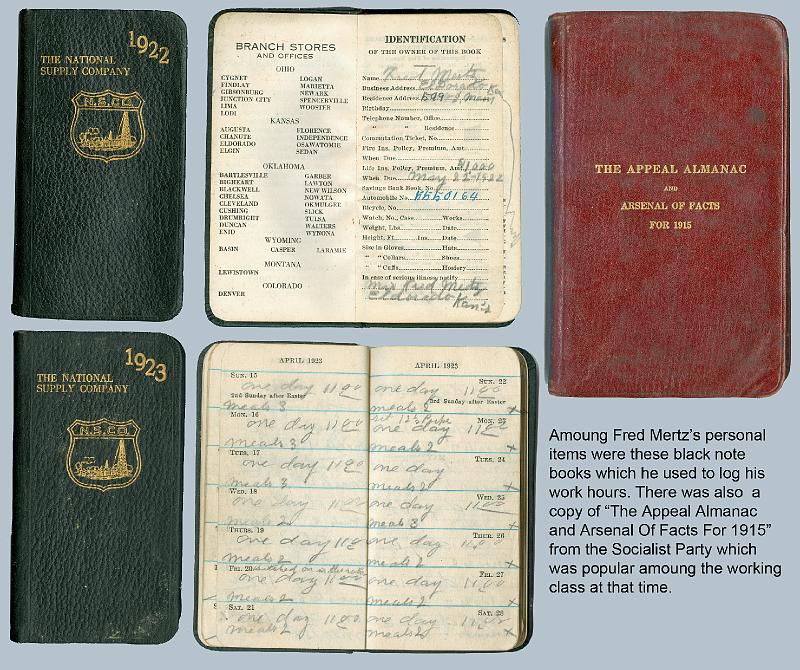 1922
THE NATIONAL
SUPPLY COMPANY
N.S.CO.
BRANCH STORES
AND OFFICES
OHIO
CYGNET LOGAN
FINDLAY MARIETTA
GIBSONBURG NEWARK
JUNCTION CITY SPENCERVILLE
LIMA WOOSTER
LODI
KANSAS
AUGUSTA FLORENCE
CHANUTE INDEPENDENCE
ELDORADO OSAWATOMIE
ELGIN SEDAN
OKLAHOMA
BARTLESVILLE GARBER
BIGHEART LAWTON
BLACKWELL NEW WILSON
CHELSEA NOWATA
CLEVELAND OKMULGEE
CUSHING SLICK
DRUMRIGHT TULSA
DUNCAN WALTERS
ENID WYNONA
WYOMING
BASIN CASPER LARAMIE
MONTANA
LEWISTOWN
COLORADO
DENVER
IDENTIFICATION
OF THE OWNER OF THIS BOOK
Name Fred Mertz
Business Address Eldorado Kan
Residence Address 599
Birthday
Telephone Number, Office
" " Residence
Commutation Ticket, No.
Fire Ins. Policy, Premium, Amt.
When Due
Life Ins. Policy, Premium, Amt. $1,000
When Due May 22-1922
Savings Bank Book, No.
Automobile No.
Bicycle, No.
Watch, No., Case Works
Weight, Lbs. Date
Height, Ft. Ins. Date
Size in Gloves Hats
" " Collars Shoes
" " Cuffs Hosiery
In case of serious illness notify
Mrs Fred Mertz
Eldorado Kan's
THE APPEAL ALMANAC
AND
ARSENAL OF FACTS
FOR 1915
1923
THE NATIONAL
SUPPLY COMPANY
N.S.CO.
APRIL 1923
SUN. 15
one day 11 00
2nd Sunday after Easter
meals 3
MON. 16
one day 11 00
meals 3
TUES. 17
one day 11 00
meals 3
WED. 18
one day 11 00
meals 2
THURS. 19
one day 11 00
meals 2
FRI. 20
one day 11 00
meals 2
SAT. 21
one day 11 00
meals 2
APRIL 1923
SUN. 22
one day 11 00
3rd Sunday after Easter
meals 2 x
MON. 23
one day 11 00
meals 2 x
TUES. 24
one day
meals 2 x
WED. 25
one day 11 00
meals 3 x
THUR. 26
one day 11 00
meals 2 x
FRI. 27
one day 11 00
meals 2 x
SAT. 28
one day 11 00
meals 2 x
Amoung Fred Mertz's personal
items were these black note
books which he used to log his
work hours. There was also a
copy of “The Appeal Almanac
and Arsenal Of Facts For 1915”
from the Socialist Party which
was popular amoung the working
class at that time.